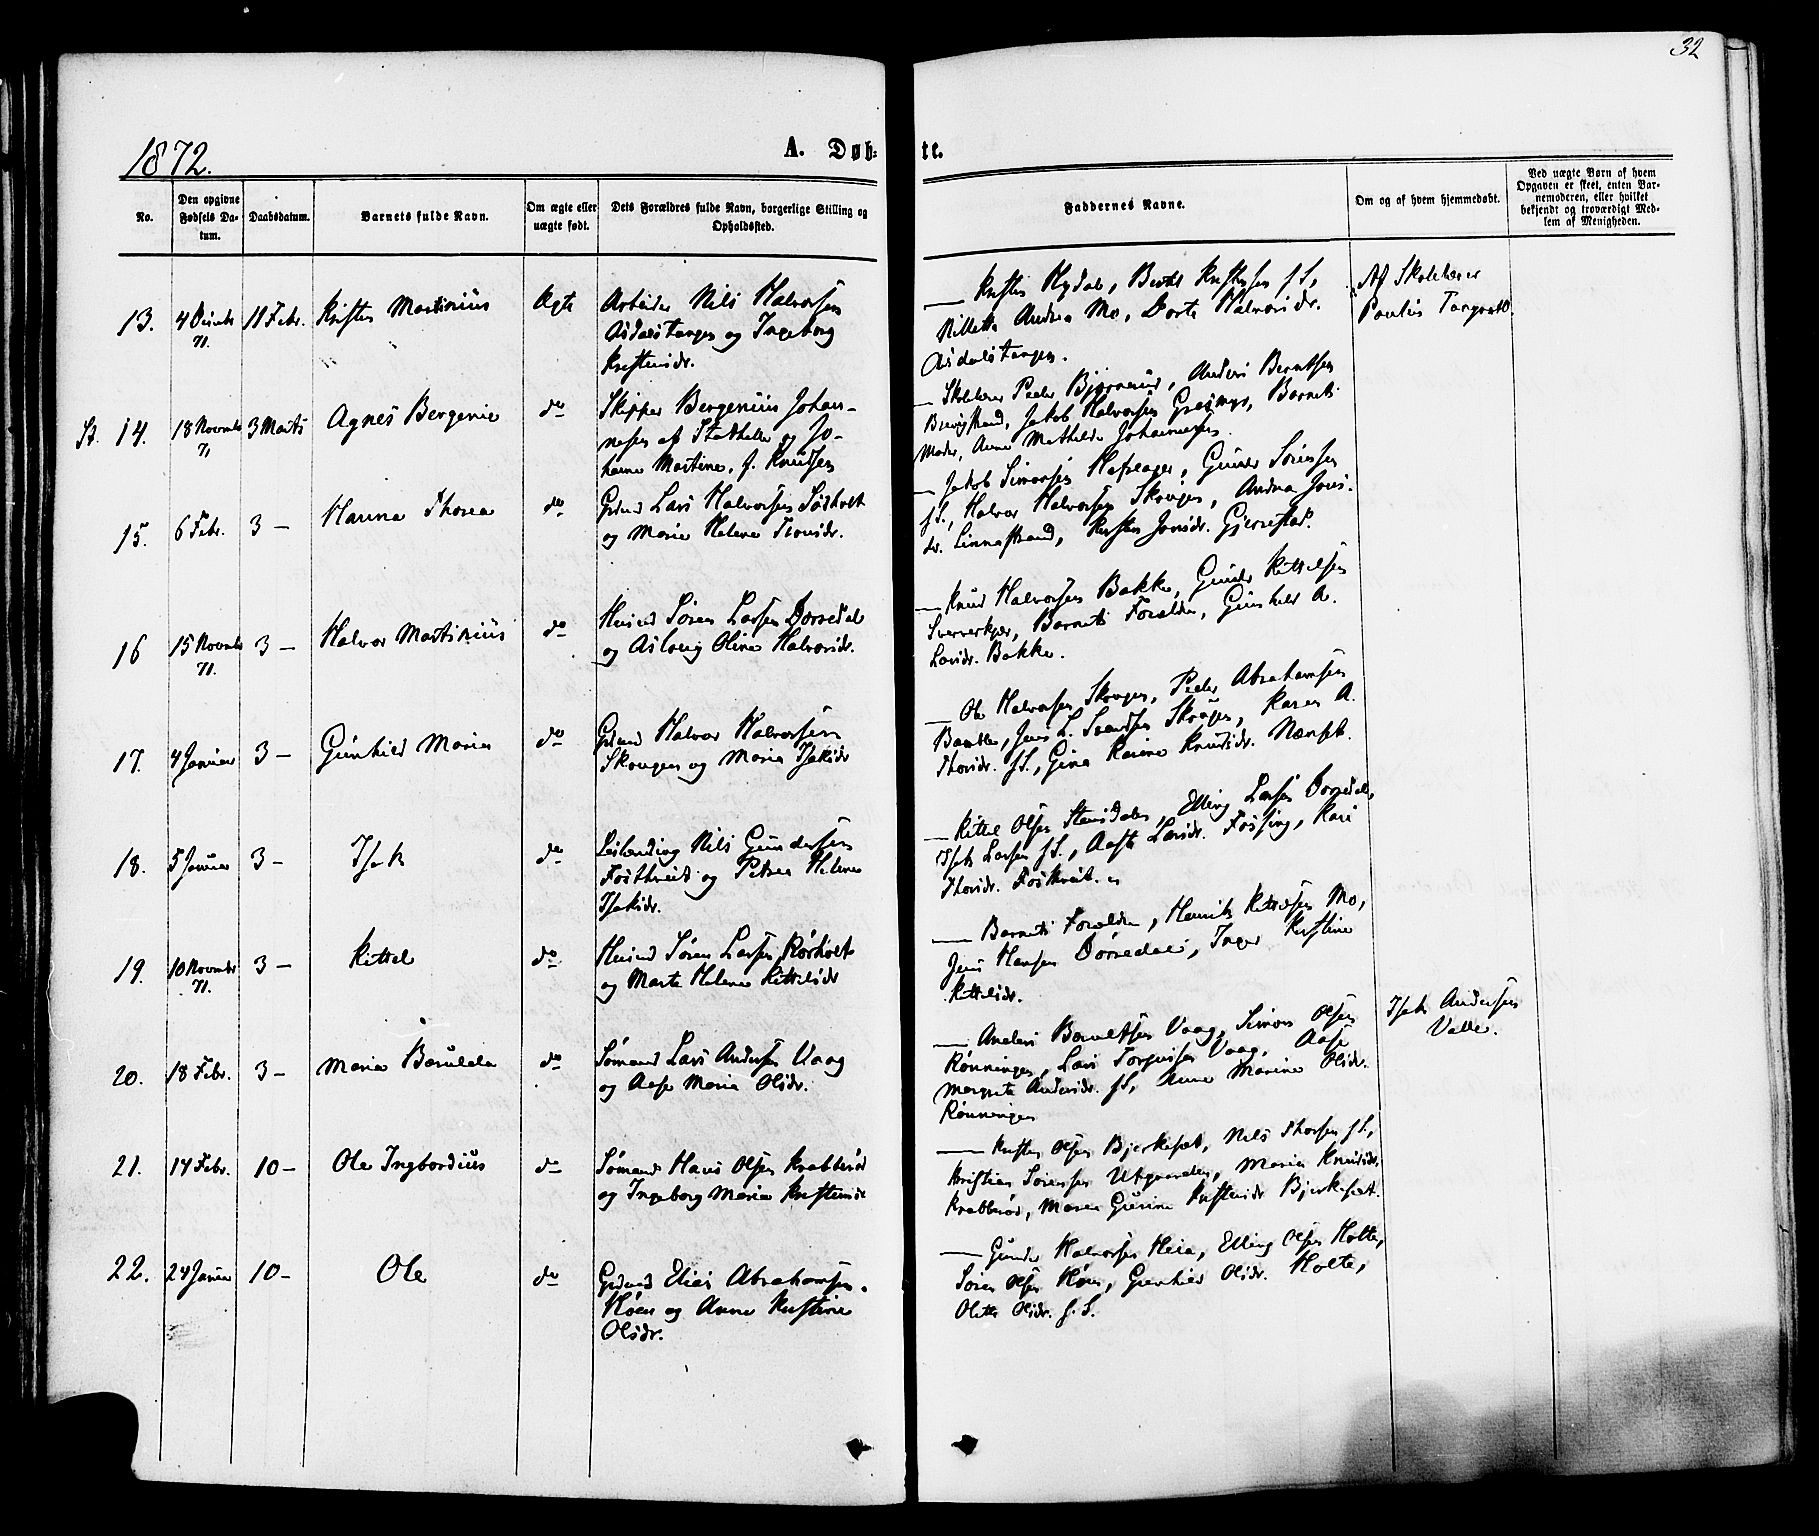 32
1872.
A. Døb-
te.
No.
Den opgivne Fødsels Da-tum.
Daabsdatum.
Barnets fulde Navn.
Om ægte eller uægte født.
Dets Forældres fulde Navn, borgerlige Stilling og Opholdssted.
Faddernes Navne.
Om og af hvem hjemmedøbt.
Ved uægte Børn af hvem Opgaven er skeet, enten Bar-nemoderen, eller hvilket bekjendt og troværdigt Med-lem af Menigheden.
13. 4 Decmbr 71. 11 Febr. Kristen Martinius Ægte Arbeider Nils Halvorsen
Asdalstangen og Ingeborg
Kristensdr.
— Kristen Hydal, Berthe Kristensen s.S.,
Andrea Mo, Dorte Halvorsdr.
Asdalstangen.
Af Skolelærer
Paulus Tangvald.
St. 14. 18 Novmbr 71 3 Marts Agnes Bergenie do Skipper Bergenius Johan-
nesen af Stathelle og Jo-
hanne Martine, f. Knudsen
— Skolelærer Peder Bjørnerud, Anders Berntsen
Brevigstrand, Jakob Halvorsen Grasmyr, Barnets
Moder, Anne Mathilde Johannesen.
15. 6 Febr. 3 — Hanna Thorea do Grdmd Lars Halvorsen Sødholt
og Marie Helene Tovsdr.
— Jakob Simonsen Hafsager, Gunder Sørensen
s.S., Halvor Halvorsen Skougen, Andrea Jons-
dr. Linnastrand, Kirsten Jonsdr. Gjerrestad.
16 15 Novmbr 71. 3 — Halvor Martinius do Husmd Søren Larsen Dørsdal
og Asloug Oline Halvorsdr.
— Knud Halvorsen Bakke, Gunder Kittilsen
Sververkjær, Barnets Forældre, Gunhild A.
Larsdr. Bakke.
17. 4 Januar 3 — Gunhild Maria do Grdmd Halvor Halvorsen
Skougen og Maria Isaksdr
— Ole Halvorsen Skougen, Peder Abrahamsen
Bamble, Jens L. Svendsen Skougen, Karen A.
Thorsdr. s.S., Gina Karine Knudsdr. Nenset.
18. 5 Januar 3 — Isak do Leilending Nils Gundersen
Fostveid og Petrea Helene
Isaksdr.
— Kittel Olsen Stensdalen, Elling Larsen Dørsdal,
Isak Larsen s.S., Aaste Larsdr. Fossing, Kari
Thorsdr. Fostveit.
19. 10 Novmbr 71. 3 — Kittel do Husmd Søren Larsen Rørholt
og Marte Helene Kittelsdr
— Barnets Forældre, Henrik Kittelsen Mo,
Jens Hansen Dørsdal, Inger Kristine
Kittelsdr.
20. 18 Febr. 3 — Maria Børulda do Sømand Lars Andersen Vaag
og Aase Maria Olsdr.
— Anders Børulfsen Vaag, Simon Olsen
Rønningen, Lars Torgersen Vaag, Aase
Margrete Andersdr. s.S., Anne Marine Olsdr.
Rønningen
Isak Andersen
Valle.
21. 14 Febr. 10 — Ole Ingbordius do Sømand Hans Olsen Krabberød
og Ingeborg Maria Kristensdr
— Kristen Olsen Bjerkeset, Nils Thorsen s.S.,
Kristian Sørensen Utgaarden, Maria Knudsdr.
Krabberød, Maren Gurine Kristensdr Bjerkeset.
22. 24 Januar 10 — Ole do Grdmd Elias Abrahamsen
Høen og Anne Kristine
Olsdr.
— Gunder Halvorsen Heia, Elling Olsen Holte,
Søren Olsen Høen, Gunhild Olsdr. Holte,
Olette Olsdr. s.S.